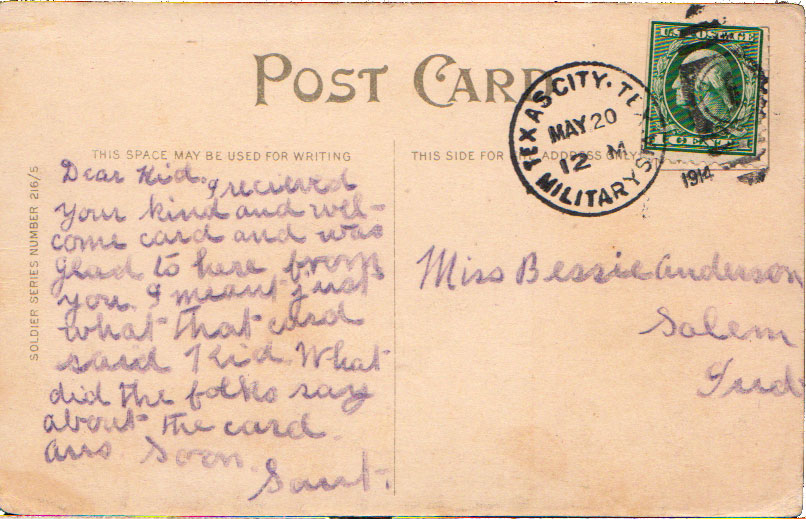 POST CARD
THIS SPACE MAY BE USED FOR WRITING
THIS SIDE FOR THE ADDRESS ONLY
SOLDIER SERIES NUMBER 216/5
TEXAS CITY. TE
MAY 20
12 M
MILITARY S
1914
Dear Kid. I recieved
your kind and wel-
come card and was
glad to here from
you. I meant just
what that card
said Kid. What
did the folks say
about the card.
ans. Soon.
Miss Bessie Anderson
Salem
Ind